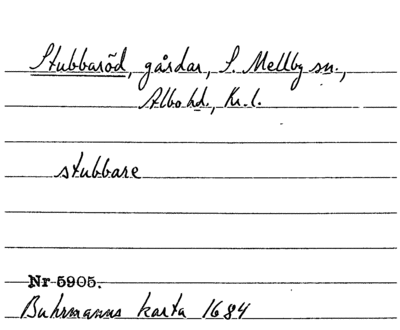 Stubbaröd, gårdar, S. Mellby sn.,
Albo hd., Kr. l.
stubbare
Nr 5905.
Buhrmanns karta 1684